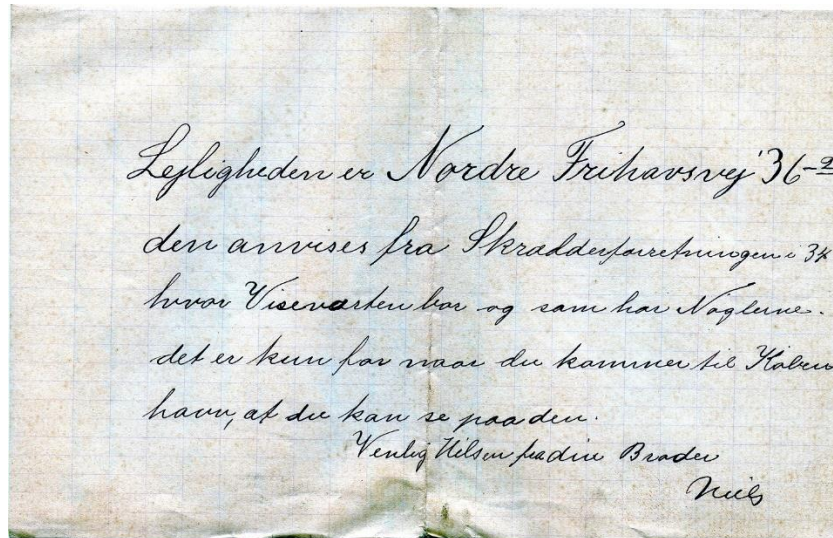 Lejligheden er Nordre Frihavsvej 36-2
den anvises fra Skrædderforretningen i 34
hvor Viseværten bor og som har Nøglerne.
det er kun for naar du kommer til Køben
havn, at du kan se paa den.
Venlig Hilsen fra din Broder
Niels